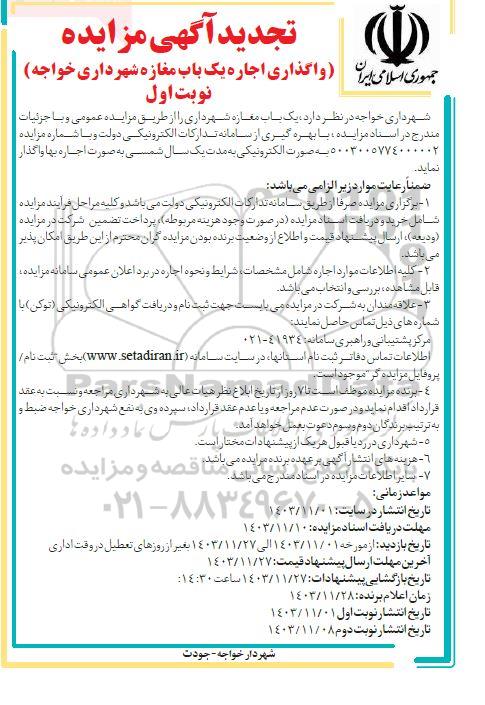 تجدید آگهی مزایده
(واگذاری اجاره یک باب مغازه شهرداری خواجه)
نوبت اول
جمهوری اسلامی ایران
شهرداری خواجه در نظر دارد، یک باب مغازه شهرداری را از طریق مزایده عمومی و با جزئیات
مندرج در اسناد مزایده، با بهره گیری از سامانه تدارکات الکترونیکی دولت و با شماره مزایده
۵۰۰۳۰۰۵۷۷۴۰۰۰۰۰۲ به صورت الکترونیکی به مدت یک سال شمسی به صورت اجاره بها واگذار
نماید.
ضمناً رعایت موارد زیر الزامی می باشد:
۱- برگزاری مزایده صرفا از طریق سامانه تدارکات الکترونیکی دولت می باشد و کلیه مراحل فرآیند مزایده
شامل خرید و دریافت اسناد مزایده (در صورت وجود هزینه مربوطه)، پرداخت تضمین شرکت در مزایده
(ودیعه)، ارسال پیشنهاد قیمت و اطلاع از وضعیت برنده بودن مزایده گران محترم از این طریق امکان پذیر
می باشد.
۲- کلیه اطلاعات موارد اجاره شامل مشخصات، شرایط و نحوه اجاره در برد اعلان عمومی سامانه مزایده،
قابل مشاهده، بررسی و انتخاب می باشد.
۳- علاقه مندان به شرکت در مزایده می بایست جهت ثبت نام و دریافت گواهی الکترونیکی (توکن) با
شماره های ذیل تماس حاصل نمایند:
مرکز پشتیبانی و راهبری سامانه: ۴۱۹۳۴-۰۲۱
اطلاعات تماس دفاتر ثبت نام استانها، در سایت سامانه (www.setadiran.ir) بخش "ثبت نام /
پروفایل مزایده گر" موجود است.
۴- برنده مزایده موظف است تا ۷ روز از تاریخ ابلاغ نظر هیات عالی به شهرداری مراجعه و نسبت به عقد
قرارداد اقدام نماید و در صورت عدم مراجعه و یا عدم عقد قرارداد، سپرده وی به نفع شهرداری خواجه ضبط و
به ترتیب برندگان دوم و سوم دعوت بعمل خواهد آمد.
۵- شهرداری در رد یا قبول هر یک از پیشنهادات مختار است.
۶- هزینه های انتشار آگهی بر عهده برنده مزایده می باشد.
۷- سایر اطلاعات مزایده در اسناد مندرج می باشد.
مواعد زمانی:
تاریخ انتشار در سایت: ۱۴۰۳/۱۱/۰۱
مهلت دریافت اسناد مزایده: ۱۴۰۳/۱۱/۱۰
تاریخ بازدید: از مورخه ۱۴۰۳/۱۱/۰۱ الی ۱۴۰۳/۱۱/۲۷ بغیر از روزهای تعطیل در وقت اداری
آخرین مهلت ارسال پیشنهاد قیمت: ۱۴۰۳/۱۱/۲۷
تاریخ بازگشایی پیشنهادات: ۱۴۰۳/۱۱/۲۷ ساعت ۱۴:۳۰:
زمان اعلام برنده: ۱۴۰۳/۱۱/۲۸
تاریخ انتشار نوبت اول ۱۴۰۳/۱۱/۰۱
تاریخ انتشار نوبت دوم ۱۴۰۳/۱۱/۰۸
شهردار خواجه - جودت
۰۲۱-۸۸۳۴۹۶۷۰-۵